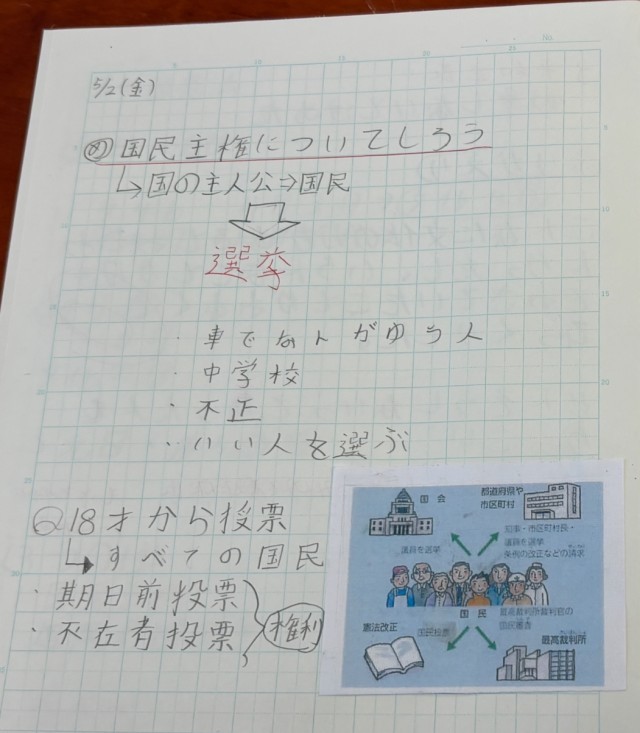 5/2(金)
め 国民主権についてしろう
↳国の主人公⇒国民
選挙
・車でなんかゆう人
・中学校
・不正
・いい人を選ぶ
○18才から投票
↳すべての国民
・期日前投票
・不在者投票
権利
国会
都道府県や
市区町村
議員を選挙
知事・市区町村長・
議員を選挙
条例の改正などの請求
国民
憲法改正
国民投票
最高裁判所裁判官の
国民審査
最高裁判所